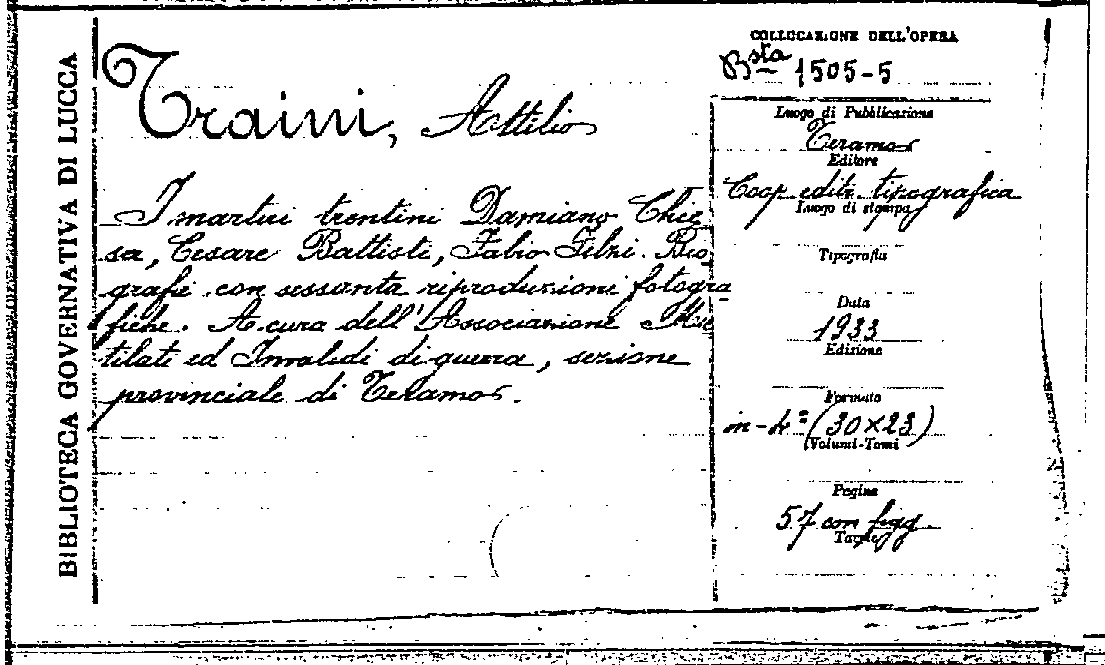 BIBLIOTECA GOVERNATIVA DI LUCCA
Traini, Attilio
I martiri trentini Damiano Chie
sa, Cesare Battisti, Fabio Filzi. Bio
grafie con sessanta riproduzioni fotogra
fiche. A cura dell'Associazione Mu
tilati ed Invalidi di guerra, sezione
provinciale di Teramo.
COLLOCAZIONE DELL'OPERA
Bsta 1505-5
Luogo di Pubblicazione
Teramo
Editore
Coop. editr. tipografica
Luogo di stampa
Tipografia
Data
1933
Edizione
Formato
in-4° (30×23)
Volumi-Tomi
Pagine
57 con figg.
Tavole